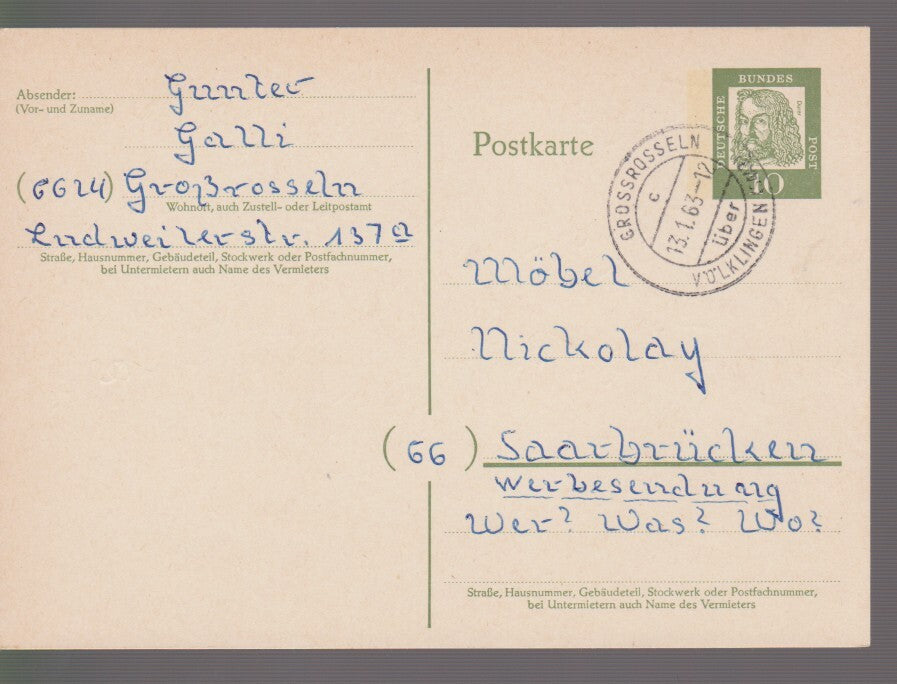 Absender: Gunter
(Vor- und Zuname)
Galli
(6624) Großrosseln
Wohnort, auch Zustell- oder Leitpostamt
Ludweilerstr. 137a
Straße, Hausnummer, Gebäudeteil, Stockwerk oder Postfachnummer,
bei Untermietern auch Name des Vermieters
Postkarte
DEUTSCHE BUNDES POST
Dürer
10
GROSSROSSELN
über
VÖLKLINGEN
c
13.1.63-12
Möbel
Nickolay
(66) Saarbrücken
Werbesendung
Wer? Was? Wo?
Straße, Hausnummer, Gebäudeteil, Stockwerk oder Postfachnummer,
bei Untermietern auch Name des Vermieters